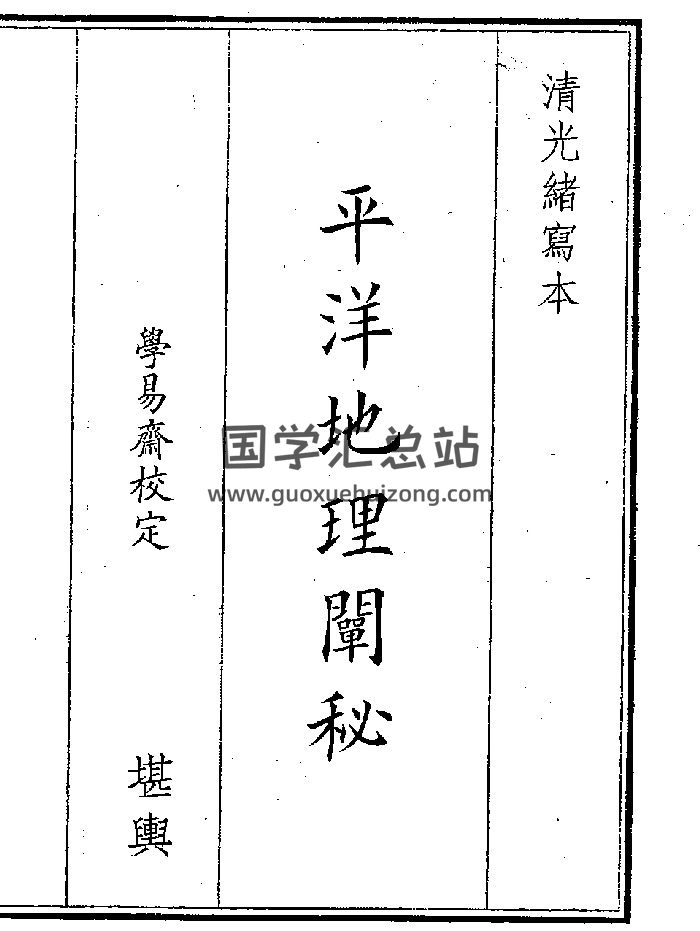 清光緒寫本
平洋地理闡秘
學易齋校定
堪輿
国学汇总站
www.guoxuehuizong.com